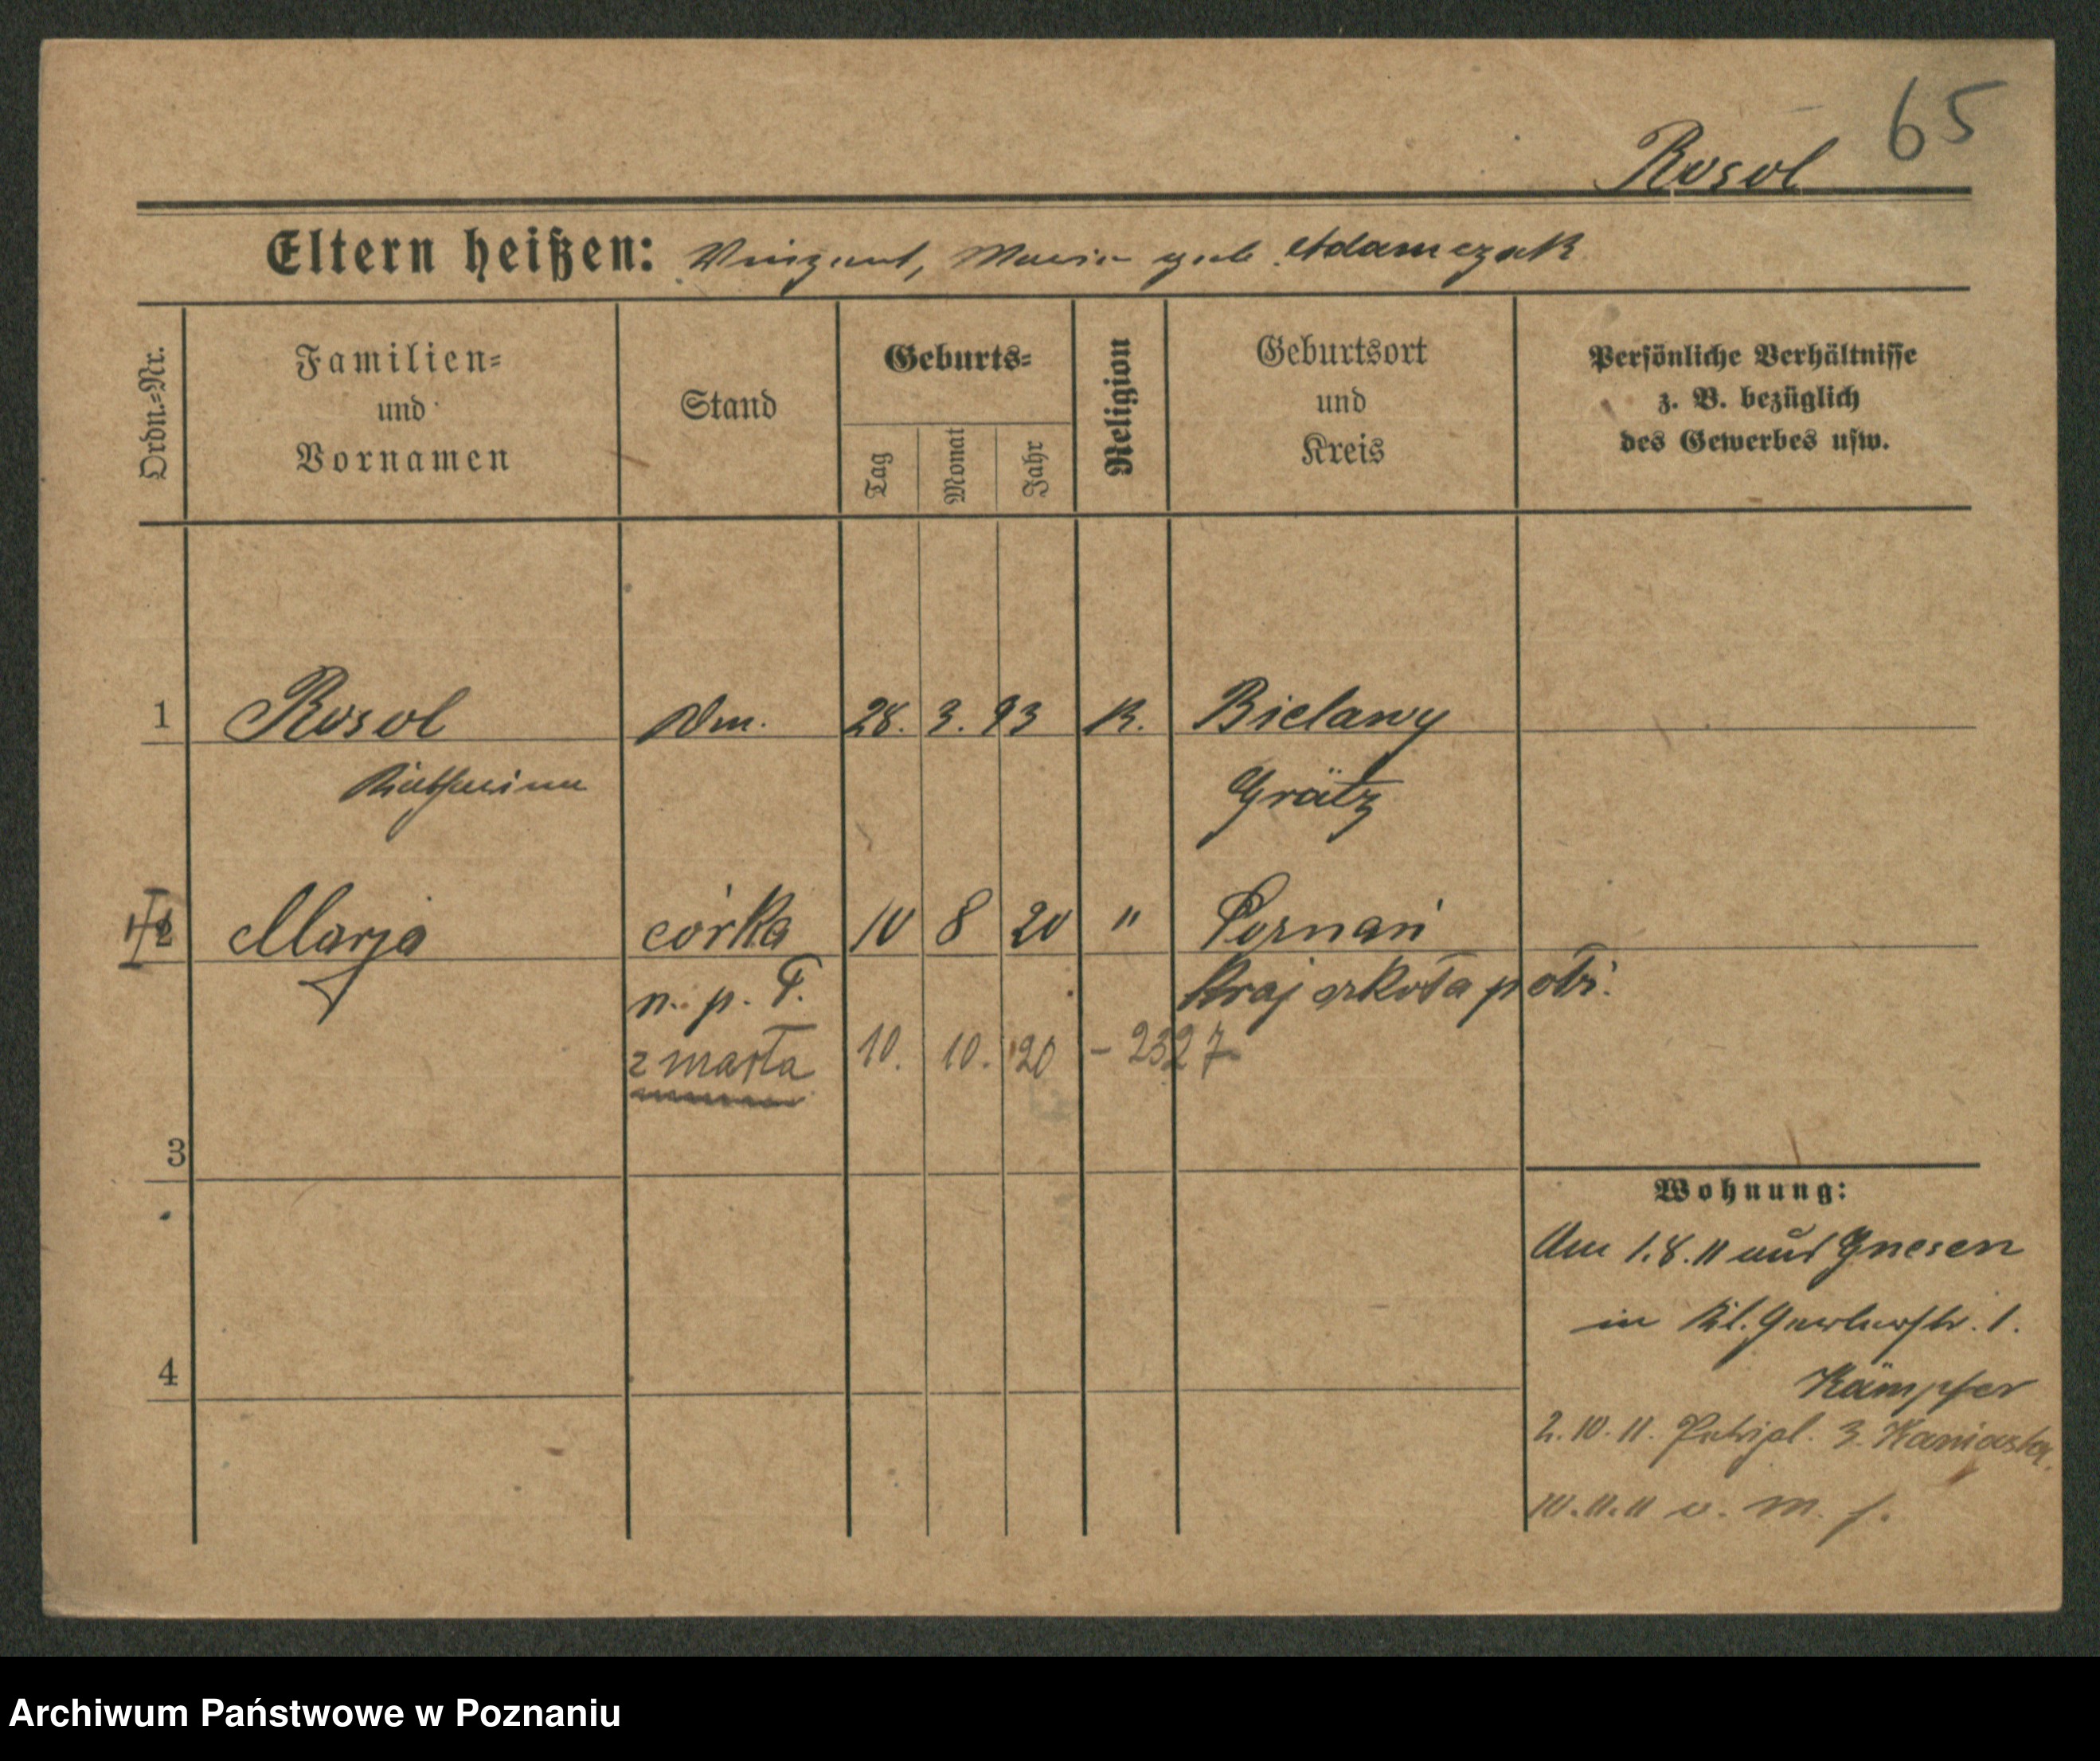 65
Rosol
Eltern heißen: Vinzent, Maria geb. Adamczak
Ordn.=Nr.
Familien=
und
Vornamen
Stand
Geburts=
Tag
Monat
Jahr
Religion
Geburtsort
und
Kreis
Persönliche Verhältnisse
z. B. bezüglich
des Gewerbes usw.
1 Rosol Dm. 28. 3. 93 K. Bielawy
Katharina Grätz
2 Marja córka 10 8 20 " Poznań
n. p. T. Kraj szkoła położ.
zmarła 10. 10. 20 – 2327
3
Wohnung:
Am 1.8.11 aus Gnesen
in Kl. Gerberstr. 1.
Kämpfer
4
2.10.11. Petripl. 3.
10.11.11 v. M. f.
Archiwum Państwowe w Poznaniu